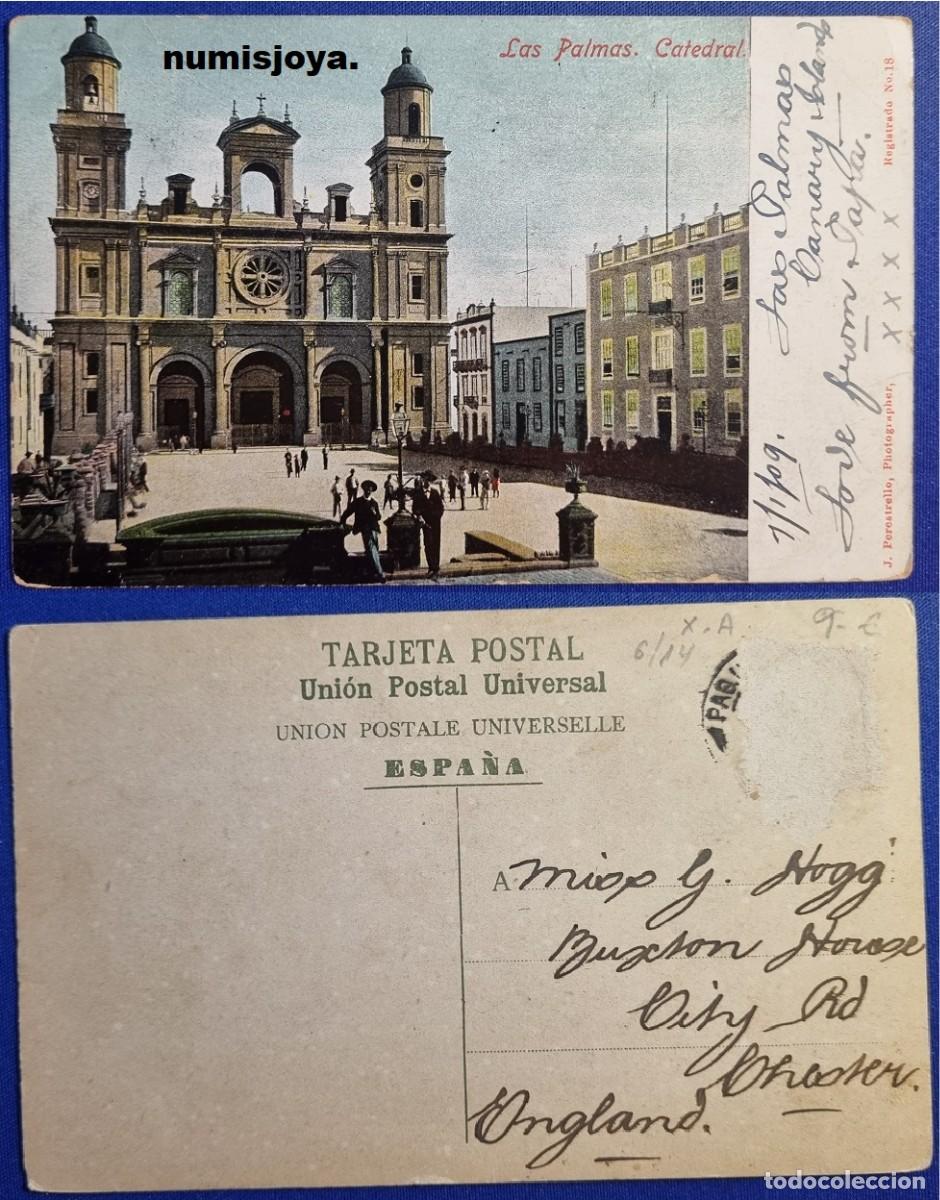 numisjoya.
Las Palmas. Catedral.
7/1/09. Las Palmas
Canary Island
Love from Papa.
x x x x
J. Perestrello, Photographer,
Registrado No. 18
X.A
6/14
9-€
TARJETA POSTAL
Unión Postal Universal
UNION POSTALE UNIVERSELLE
ESPAÑA
PAQ
A Miss G. Hogg
Buxton House
City Rd
Chester.
England.
todocoleccion